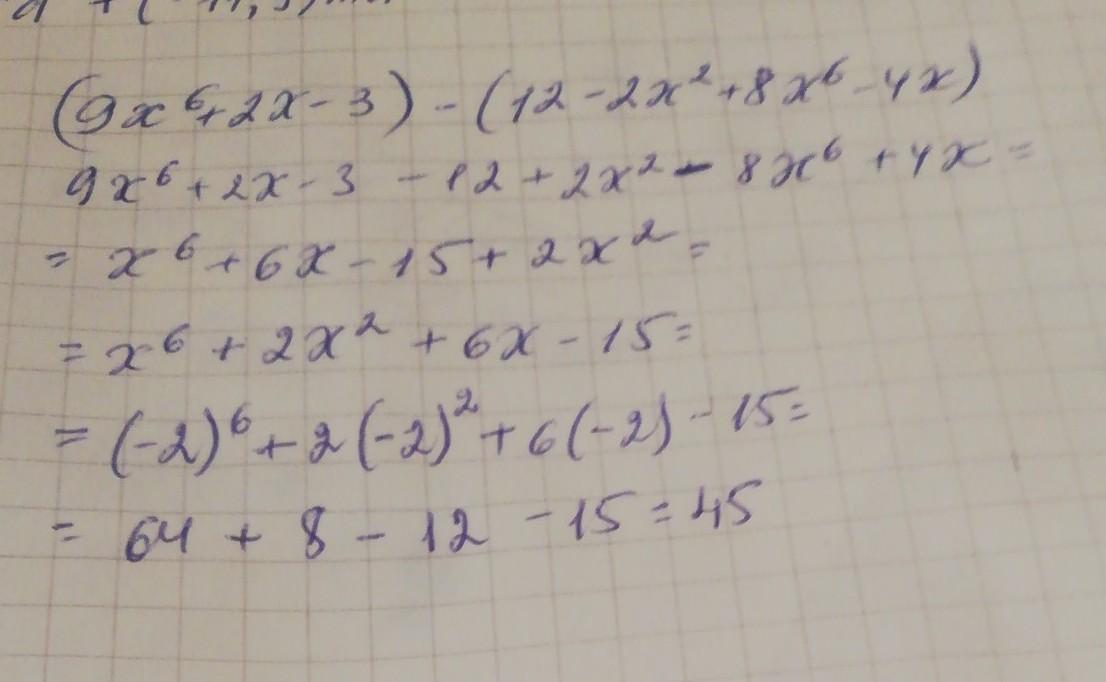 (9x⁶+2x-3)-(12-2x²+8x⁶-4x)
9x⁶+2x-3-12+2x²-8x⁶+4x=
=x⁶+6x-15+2x²=
=x⁶+2x²+6x-15=
=(-2)⁶+2(-2)²+6(-2)-15=
=64+8-12-15=45